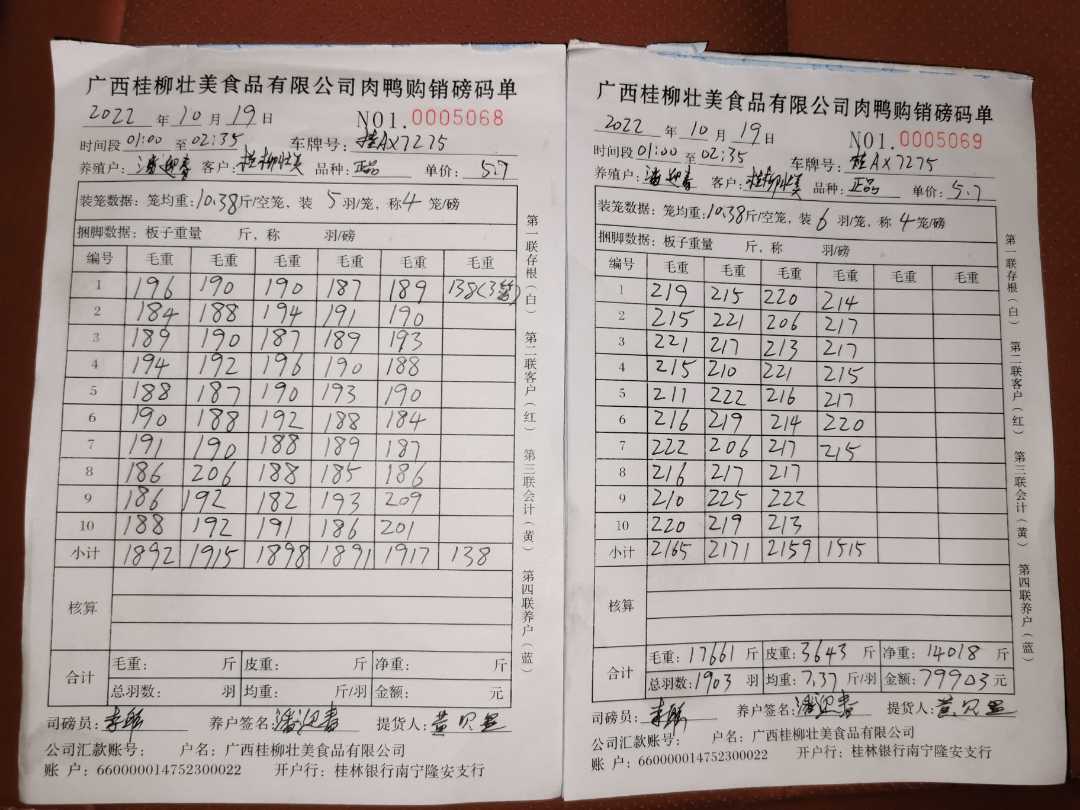 广西桂柳壮美食品有限公司肉鸭购销磅码单
2022 年 10 月 19 日 NO1. 0005068
时间段 01:00 至 02:35 车牌号: 桂AX7275
养殖户: 潘迎春 客户: 桂柳壮美 品种: 正品 单价: 5.7
装笼数据: 笼均重: 10.38 斤/空笼, 装 5 羽/笼, 称 4 笼/磅
捆脚数据: 板子重量 斤, 称 羽/磅
编号 毛重 毛重 毛重 毛重 毛重 毛重
1 196 190 190 187 189 138(3笼)
2 184 188 194 191 190
3 189 190 187 189 193
4 194 192 196 190 188
5 188 187 190 193 190
6 190 188 192 188 184
7 191 190 188 189 187
8 186 206 188 185 186
9 186 192 182 193 209
10 188 192 191 186 201
小计 1892 1915 1898 1891 1917 138
核算
合计 毛重: 斤 皮重: 斤 净重: 斤
总羽数: 羽 均重: 斤/羽 金额: 元
司磅员: 养户签名: 潘迎春 提货人:
公司汇款账号: 户名: 广西桂柳壮美食品有限公司
账 户: 660000014752300022 开户行: 桂林银行南宁隆安支行
第一联存根(白) 第二联客户(红) 第三联会计(黄) 第四联养户(蓝)
广西桂柳壮美食品有限公司肉鸭购销磅码单
2022 年 10 月 19 日 NO1. 0005069
时间段 01:00 至 02:35 车牌号: 桂AX7275
养殖户: 潘迎春 客户: 桂柳壮美 品种: 正品 单价: 5.7
装笼数据: 笼均重: 10.38 斤/空笼, 装 6 羽/笼, 称 4 笼/磅
捆脚数据: 板子重量 斤, 称 羽/磅
编号 毛重 毛重 毛重 毛重 毛重 毛重
1 219 215 220 214
2 215 221 206 217
3 221 217 213 217
4 215 210 221 215
5 211 222 216 217
6 216 219 214 220
7 222 206 217 215
8 216 217 217
9 210 225 222
10 220 219 213
小计 2165 2171 2159 1515
核算
合计 毛重: 17661 斤 皮重: 3643 斤 净重: 14018 斤
总羽数: 1903 羽 均重: 7.37 斤/羽 金额: 79903 元
司磅员: 养户签名: 潘迎春 提货人:
公司汇款账号: 户名: 广西桂柳壮美食品有限公司
账 户: 660000014752300022 开户行: 桂林银行南宁隆安支行
第一联存根(白) 第二联客户(红) 第三联会计(黄) 第四联养户(蓝)